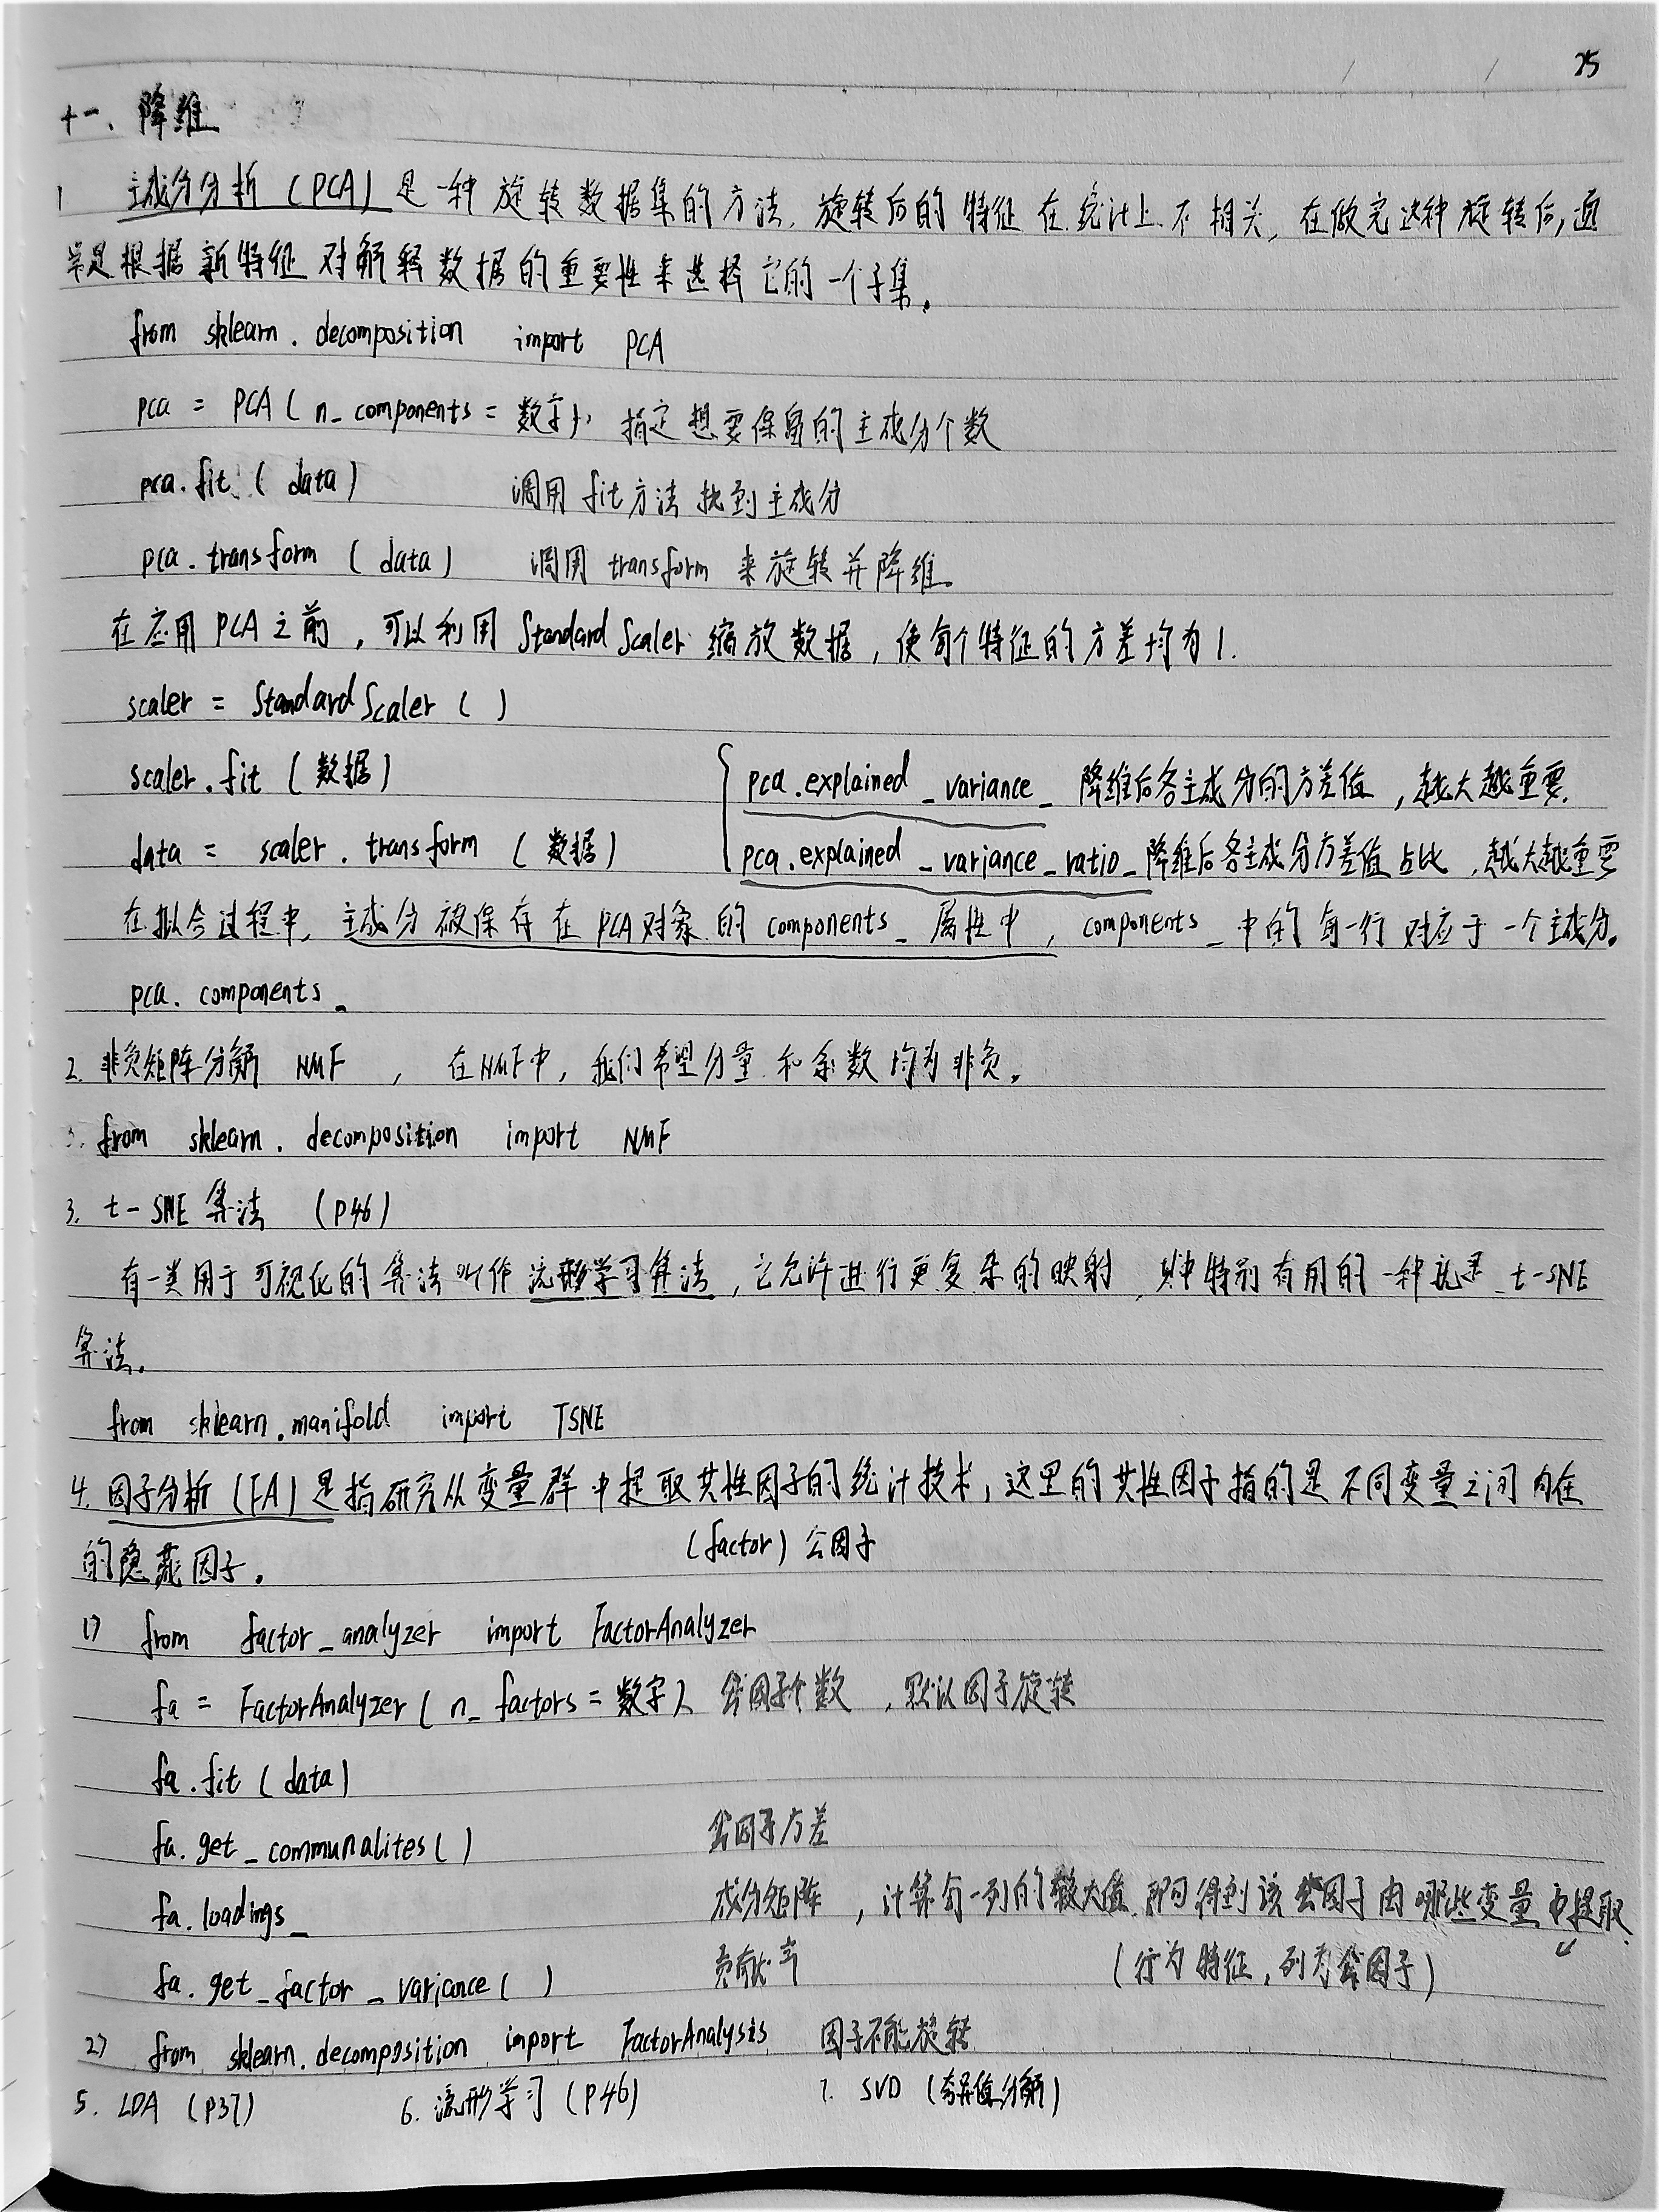 25
十一、降维
1 主成分分析(PCA)是一种旋转数据集的方法,旋转后的特征在统计上不相关,在做完这种旋转后,通
常是根据新特征对解释数据的重要性来选择它的一个子集。
from sklearn.decomposition import PCA
pca = PCA(n_components = 数字) 指定想要保留的主成分个数
pca.fit(data) 调用fit方法找到主成分
pca.transform(data) 调用transform来旋转并降维。
在应用PCA之前,可以利用StandardScaler缩放数据,使每个特征的方差均为1.
scaler = StandardScaler()
scaler.fit(数据)
pca.explained_variance_ 降维后各主成分的方差值,越大越重要.
data = scaler.transform(数据)
pca.explained_variance_ratio_ 降维后各主成分方差值占比,越大越重要
在拟合过程中,主成分被保存在PCA对象的components_属性中,components_中的每一行对应于一个主成分。
pca.components_
2. 非负矩阵分解 NMF ,在NMF中,我们希望分量和系数均为非负。
3. from sklearn.decomposition import NMF
3. t-SNE算法 (P46)
有一类用于可视化的算法叫作流形学习算法,它允许进行更复杂的映射,其中特别有用的一种就是t-SNE
算法。
from sklearn.manifold import TSNE
4. 因子分析(FA)是指研究从变量群中提取共性因子的统计技术,这里的共性因子指的是不同变量之间内在
的隐藏因子。 (factor)公因子
1) from factor_analyzer import FactorAnalyzer
fa = FactorAnalyzer(n_factors = 数字) 公因子个数,默认因子旋转
fa.fit(data)
fa.get_communalites() 公因子方差
fa.loadings_ 成分矩阵,计算每一列的较大值,即可得到该公因子由哪些变量中提取.
fa.get_factor_variance() 贡献率 (行为特征,列为公因子)
2) from sklearn.decomposition import FactorAnalysis 因子不能旋转
5. LDA (P37) 6. 流形学习(P46) 7. SVD(奇异值分解)